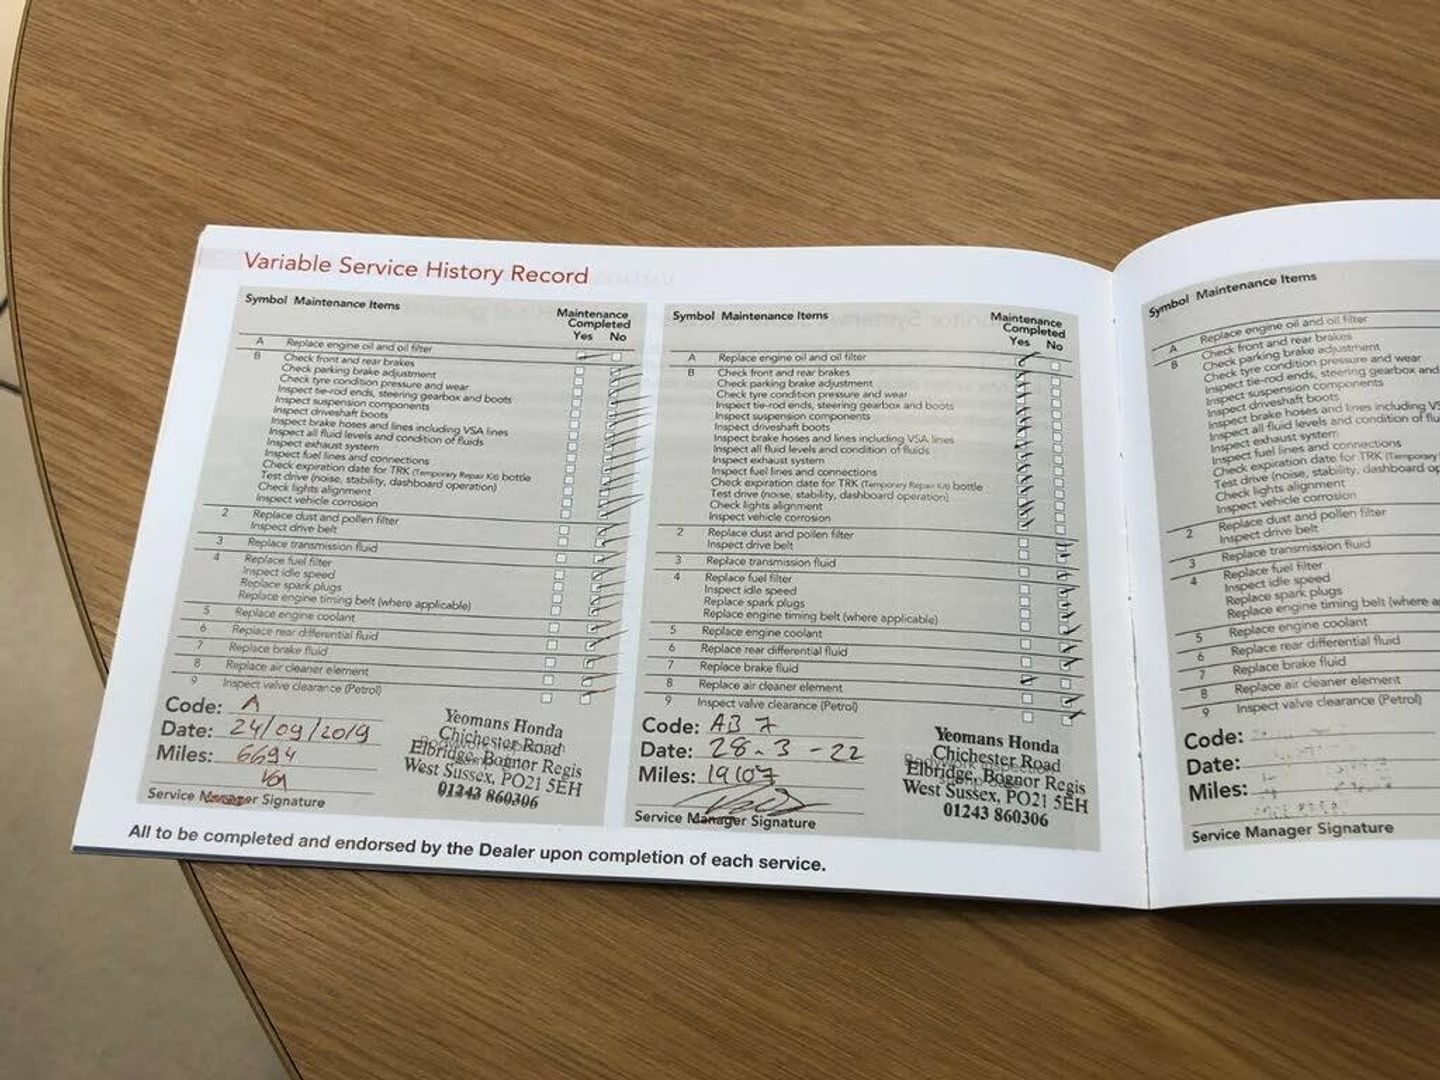 Variable Service History Record
Symbol Maintenance Items
Maintenance
Completed
Yes No
A Replace engine oil and oil filter
B Check front and rear brakes
Check parking brake adjustment
Check tyre condition pressure and wear
Inspect tie-rod ends, steering gearbox and boots
Inspect suspension components
Inspect driveshaft boots
Inspect brake hoses and lines including VSA lines
Inspect all fluid levels and condition of fluids
Inspect exhaust system
Inspect fuel lines and connections
Check expiration date for TRK (Temporary Repair Kit) bottle
Test drive (noise, stability, dashboard operation)
Check lights alignment
Inspect vehicle corrosion
2 Replace dust and pollen filter
Inspect drive belt
3 Replace transmission fluid
4 Replace fuel filter
Inspect idle speed
Replace spark plugs
Replace engine timing belt (where applicable)
5 Replace engine coolant
6 Replace rear differential fluid
7 Replace brake fluid
8 Replace air cleaner element
9 Inspect valve clearance (Petrol)
Code: A
Date: 24/09/2019
Miles: 6694
Service Manager Signature
Yeomans Honda
Chichester Road
Elbridge, Bognor Regis
West Sussex, PO21 5EH
01243 860306
Symbol Maintenance Items
Maintenance
Completed
Yes No
A Replace engine oil and oil filter
B Check front and rear brakes
Check parking brake adjustment
Check tyre condition pressure and wear
Inspect tie-rod ends, steering gearbox and boots
Inspect suspension components
Inspect driveshaft boots
Inspect brake hoses and lines including VSA lines
Inspect all fluid levels and condition of fluids
Inspect exhaust system
Inspect fuel lines and connections
Check expiration date for TRK (Temporary Repair Kit) bottle
Test drive (noise, stability, dashboard operation)
Check lights alignment
Inspect vehicle corrosion
2 Replace dust and pollen filter
Inspect drive belt
3 Replace transmission fluid
4 Replace fuel filter
Inspect idle speed
Replace spark plugs
Replace engine timing belt (where applicable)
5 Replace engine coolant
6 Replace rear differential fluid
7 Replace brake fluid
8 Replace air cleaner element
9 Inspect valve clearance (Petrol)
Code: AB 7
Date: 28.3-22
Miles: 19107
Service Manager Signature
Yeomans Honda
Chichester Road
Elbridge, Bognor Regis
West Sussex, PO21 5EH
01243 860306
All to be completed and endorsed by the Dealer upon completion of each service.
Symbol Maintenance Items
A Replace engine oil and oil filter
B Check front and rear brakes
Check parking brake adjustment
Check tyre condition pressure and wear
Inspect tie-rod ends, steering gearbox and
Inspect suspension components
Inspect driveshaft boots
Inspect brake hoses and lines including VS
Inspect all fluid levels and condition of flu
Inspect exhaust system
Inspect fuel lines and connections
Check expiration date for TRK (Temporary
Test drive (noise, stability, dashboard op
Check lights alignment
Inspect vehicle corrosion
2 Replace dust and pollen filter
Inspect drive belt
3 Replace transmission fluid
4 Replace fuel filter
Inspect idle speed
Replace spark plugs
Replace engine timing belt (where a
5 Replace engine coolant
6 Replace rear differential fluid
7 Replace brake fluid
8 Replace air cleaner element
9 Inspect valve clearance (Petrol)
Code:
Date:
Miles:
Service Manager Signature